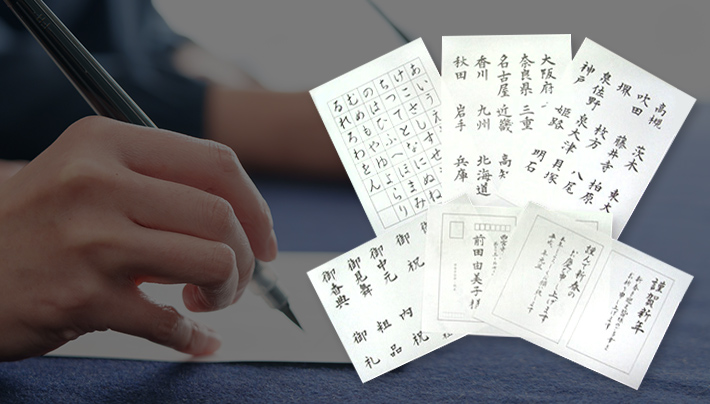 あいうえ
けこさしすせ
ちつてとなにぬね
のはひふへほまみ
むめもやゆよらり
るれろわをん
大阪府
奈良県 三重
名古屋 近畿
香川 九州 北海道
秋田 岩手 兵庫
高槻 茨木 東大
吹田 藤井寺 柏原
堺 枚方 八尾
泉佐野 東大津 貝塚
神戸 姫路 明石
御祝 内祝
御中元 粗品
御見舞
御香典 御礼
前田由美子様
謹賀新年
謹んで新春の
お慶び申し上げます